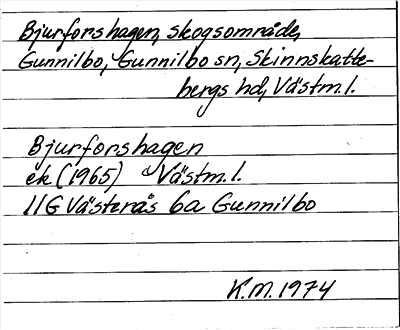 Bjurforshagen, skogsområde,
Gunnilbo, Gunnilbo sn, Skinnskatte-
bergs hd, Västm.l.
Bjurforshagen
ek (1965) Västm.l.
11G Västerås 6a Gunnilbo
K.M. 1974